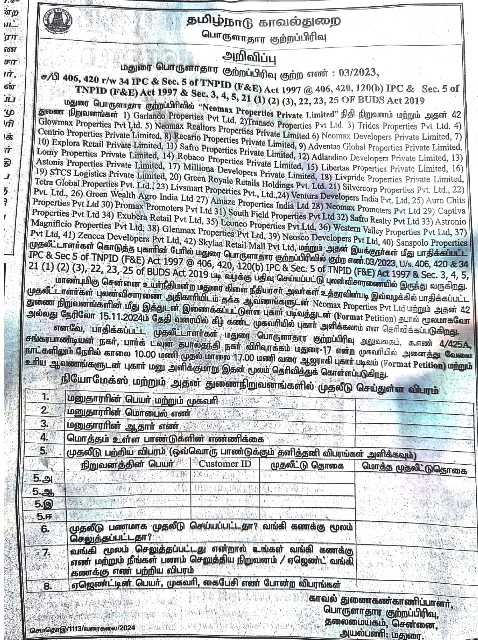 தமிழ்நாடு காவல்துறை
பொருளாதார குற்றப்பிரிவு
அறிவிப்பு
மதுரை பொருளாதார குற்றப்பிரிவு குற்ற எண் : 03/2023,
ச/பி 406, 420 r/w 34 IPC & Sec. 5 of TNPID (F&E) Act 1997 @ 406, 420, 120(b) IPC & Sec. 5 of
TNPID (F&E) Act 1997 & Sec. 3, 4, 5, 21 (1) (2) (3), 22, 23, 25 OF BUDS Act 2019
மதுரை பொருளாதார குற்றப்பிரிவில் "Neomax Properties Private Limited" நிதி நிறுவனம் மற்றும் அதன் 42
துணை நிறுவனங்கள் 1) Garlando Properties Pvt Ltd. 2)Transco Properties Pvt Ltd. 3) Trides Properties Pvt Ltd. 4)
Glowmax Properties Pvt Ltd. 5) Neomax Realtors Properties Private Limited 6) Neomax Developers Private Limited, 7)
Centrio Properties Private Limited, 8) Recario Properties Private Limited, 9) Adventas Global Properties Private Limited,
10) Explora Retail Private Limited, 11) Safro Properties Private Limited, 12) Adlandino Developers Private Limited, 13)
Lonity Properties Private Limited, 14) Robaco Properties Private Limited, 15) Libertas Properties Private Limited, 16)
Astonis Properties Private Limited, 17) Milliona Developers Private Limited, 18) Livpride Properties Private Limited,
19) STCS Logistics Private Limited, 20) Green Royala Retails Holdings Pvt Ltd. 21) Silvercorp Properties Pvt Ltd., 22)
Tetra Global Properties Pvt Ltd., 23) Livsmart Properties Pvt. Ltd., 24) Ventura Developers India Pvt Ltd., 25) Auro Chits
Pvt Ltd., 26) Green Wealth Agro India Ltd 27) Amaze Properties India Ltd 28) Neomax Promoters Pvt Ltd 29) Captiva
Properties Pvt Ltd 30) Promax Promoters Pvt Ltd 31) South Field Properties Pvt Ltd 32) Safro Realty Pvt Ltd 33) Astronio
Magnifico Properties Pvt Ltd 34) Exubera Retail Pvt Ltd. 35) Leonco Properties Pvt Ltd. 36) Western Valley Properties Pvt Ltd, 37)
Pvt Ltd 38) Glenmax Properties Pvt Ltd. 39) Neosco Developers Pvt Ltd. 40) Sanspolo Properties
Pvt Ltd, 41) Zenocca Developers Pvt Ltd, 42) Skylia Retail Mall Pvt Ltd, மற்றும் அதன் இயக்குநர்கள் மீது பாதிக்கப்பட்ட
முதலீட்டாளர்கள் கொடுத்த புகாரின் பேரில் மதுரை பொருளாதார குற்றப்பிரிவு குற்ற எண்.03/2023, U/s 406, 420 r/w 34
IPC & Sec 5 of TNPID (F&E) Act 1997 @ 406, 420, 120(b) IPC & Sec. 5 of TNPID (F&E) Act 1997 & Sec. 3, 4, 5,
21 (1) (2) (3), 22, 23, 25 of BUDS Act 2019 படி வழக்கு பதிவு செய்யப்பட்டு புலன்விசாரணையில் இருந்து வருகிறது.
மாண்புமிகு சென்னை உயர்நீதிமன்ற மதுரை கிளை நீதியரசர் அவர்கள் உத்தரவின்படி இவ்வழக்கில் பாதிக்கப்பட்ட
முதலீட்டாளர்கள் புலன்விசாரணை அதிகாரியிடம் தக்க ஆவணங்களுடன் Neomax Properties Pvt Ltd மற்றும் அதன் 42
துணை நிறுவனங்களின் மீது இத்துடன் இணைக்கப்பட்டுள்ள புகார் படிவத்துடன் (Format Petition) தபால் மூலமாகவோ
அல்லது நேரிலோ 15.11.2024ம் தேதி வரையில் கீழ் கண்ட முகவரியில் புகார் அளிக்கலாம் என தெரிவிக்கப்படுகிறது.
எனவே, பாதிக்கப்பட்ட முதலீட்டாளர்கள், மதுரை பொருளாதார குற்றப்பிரிவு அலுவலகம், க.எண் 4/425A,
சங்கரபாண்டியன் நகர், பார்க் டவுன், தபால்தந்தி நகர் விரிவாக்கம் மதுரை-17 என்ற முகவரியில் அனைத்து வேலை
நாட்களிலும் நேரில் காலை 10.00 மணி முதல் மாலை 17.00 மணி வரை ஆஜராகி புகார் படிவம் (Format Petition) மற்றும்
உரிய ஆவணங்களுடன் புகார் மனு அளிக்குமாறு இதன் மூலம் தெரிவித்துக் கொள்ளப்படுகிறது.
நியோமேக்ஸ் மற்றும் அதன் துணைநிறுவனங்களில் முதலீடு செய்துள்ள விபரம்
1. மனுதாரரின் பெயர் மற்றும் முகவரி
2. மனுதாரரின் மொபைல் எண்
3. மனுதாரரின் ஆதார் எண்
4. மொத்தம் உள்ள பாண்டுகளின் எண்ணிக்கை
5. முதலீடு பற்றிய விபரம் (ஒவ்வொரு பாண்டுக்கும் தனித்தனி விபரங்கள் அளிக்கவும்)
நிறுவனத்தின் பெயர் Customer ID முதலீட்டு தொகை மொத்த முதலீட்டுதொகை
5.அ
5.ஆ
5.இ
5.ஈ
6. முதலீடு பணமாக முதலீடு செய்யப்பட்டதா? வங்கி கணக்கு மூலம்
செலுத்தப்பட்டதா?
7. வங்கி மூலம் செலுத்தப்பட்டது என்றால் உங்கள் வங்கி கணக்கு
எண் மற்றும் நீங்கள் பணம் செலுத்திய நிறுவனம் / ஏஜெண்ட் வங்கி
கணக்கு எண் பற்றிய விபரம்
8. ஏஜெண்டின் பெயர், முகவரி, கைபேசி எண் போன்ற விபரங்கள்
காவல் துணைகண்காணிப்பாளர்,
பொருளாதார குற்றப்பிரிவு,
தலைமையகம், சென்னை,
அயல்பணி: மதுரை.
செ.ம.தொ.இ/1113/வரைகலை/2024